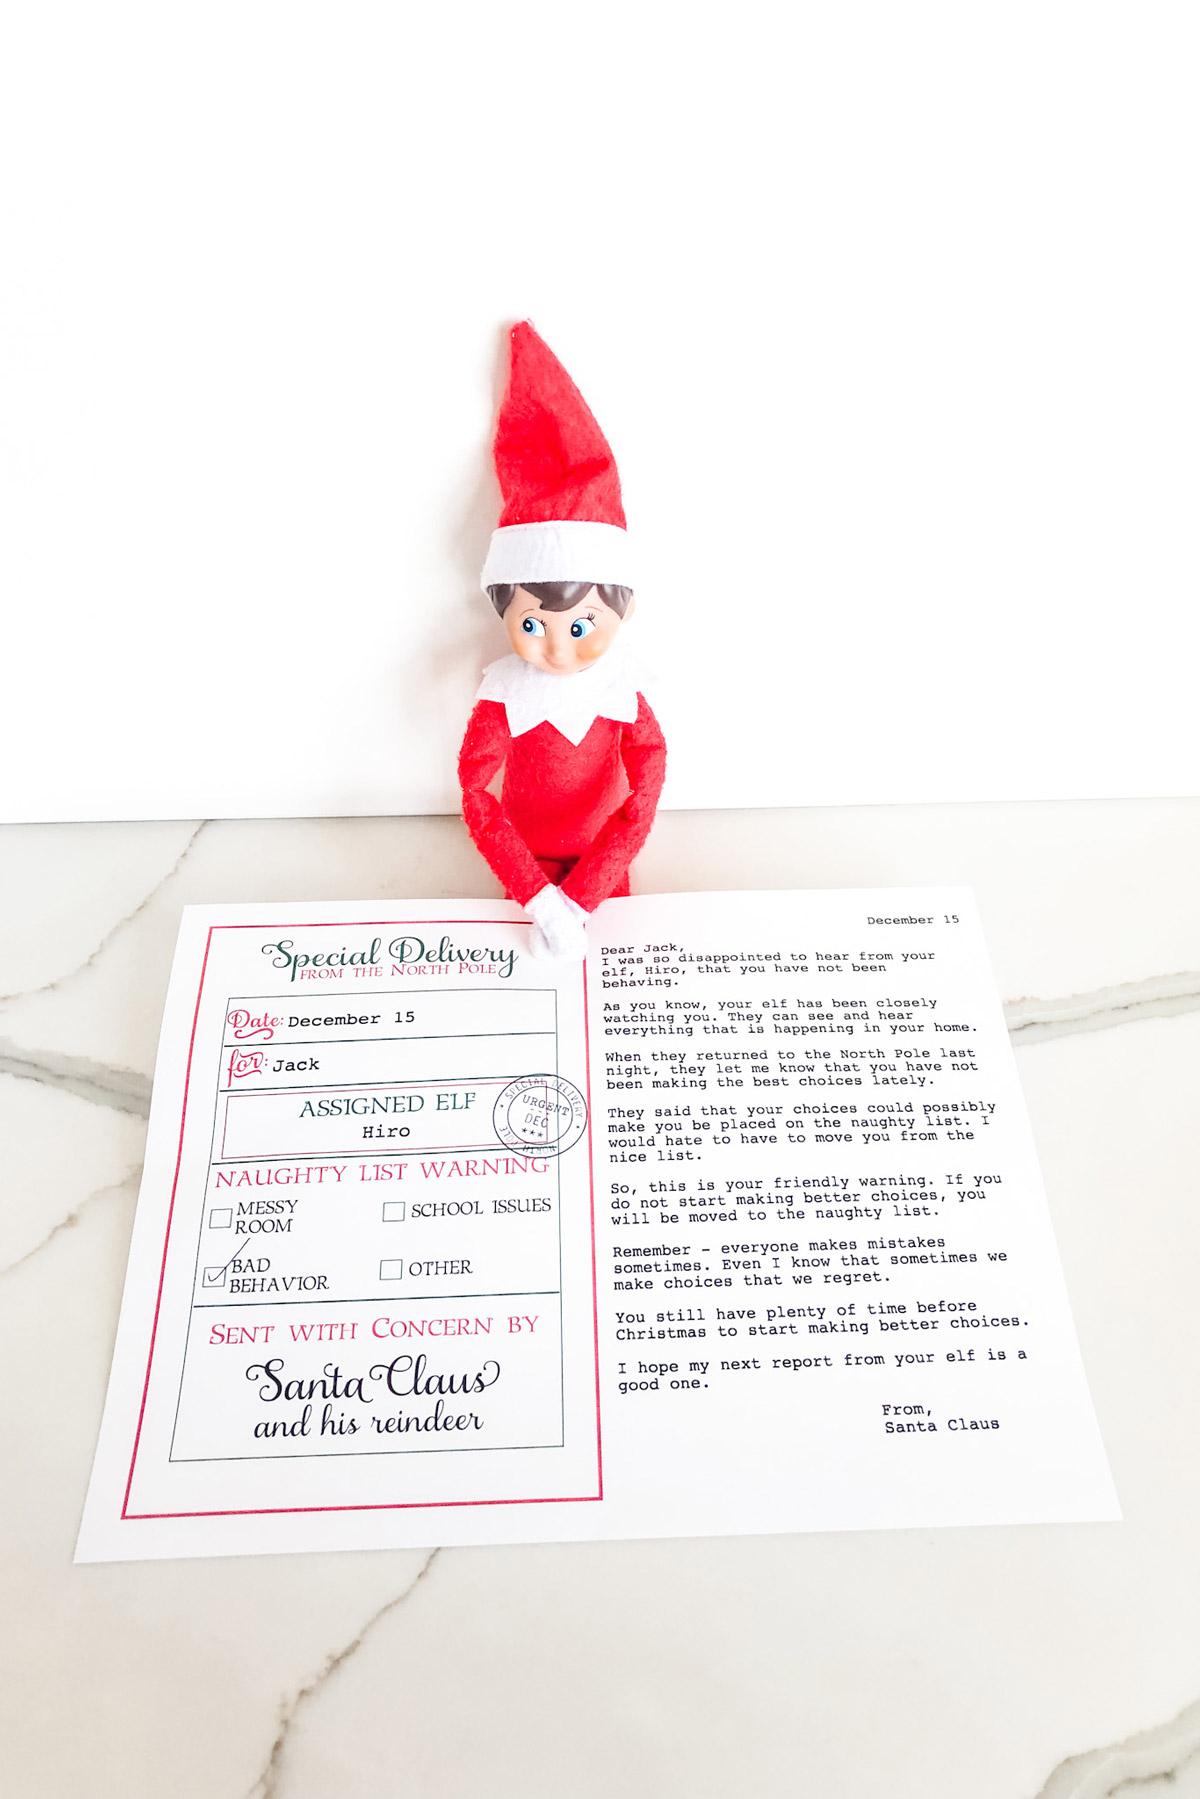 Special Delivery
FROM THE NORTH POLE
Date: December 15
for: Jack
ASSIGNED ELF
Hiro
SPECIAL DELIVERY
URGENT
DEC
NORTH POLE
NAUGHTY LIST WARNING
MESSY
ROOM
SCHOOL ISSUES
BAD
BEHAVIOR
OTHER
SENT WITH CONCERN BY
Santa Claus
and his reindeer
December 15
Dear Jack,
I was so disappointed to hear from your
elf, Hiro, that you have not been
behaving.
As you know, your elf has been closely
watching you. They can see and hear
everything that is happening in your home.
When they returned to the North Pole last
night, they let me know that you have not
been making the best choices lately.
They said that your choices could possibly
make you be placed on the naughty list. I
would hate to have to move you from the
nice list.
So, this is your friendly warning. If you
do not start making better choices, you
will be moved to the naughty list.
Remember – everyone makes mistakes
sometimes. Even I know that sometimes we
make choices that we regret.
You still have plenty of time before
Christmas to start making better choices.
I hope my next report from your elf is a
good one.
From,
Santa Claus